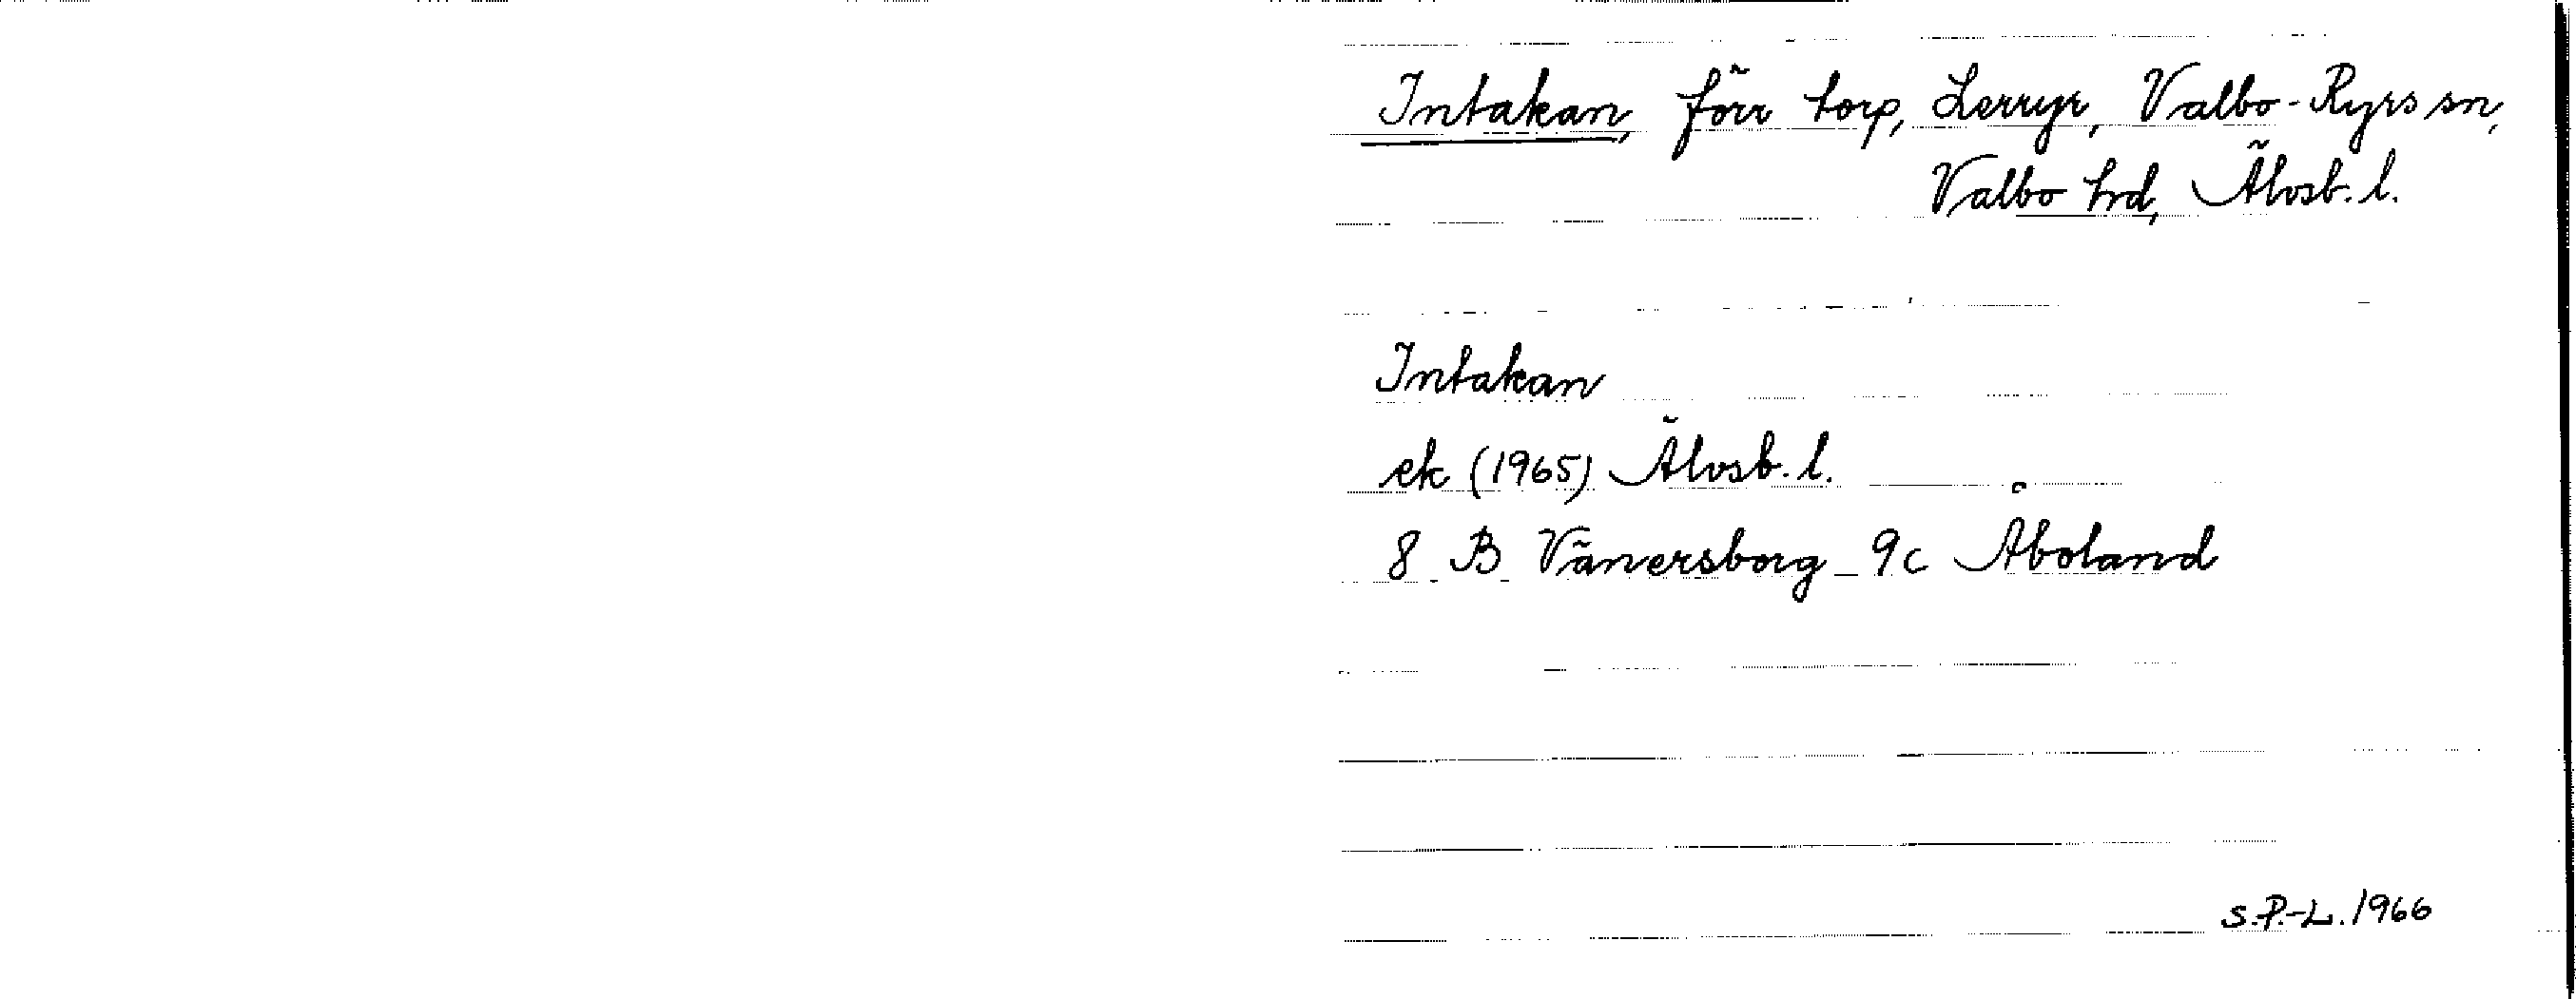 Intakan, förr torp, Lerryr, Valbo-Ryrs sn,
Valbo hd, Älvsb. l.
Intakan
ek (1965) Älvsb. l.
8 B Vänersborg 9c Åboland
S.P.-L. 1966